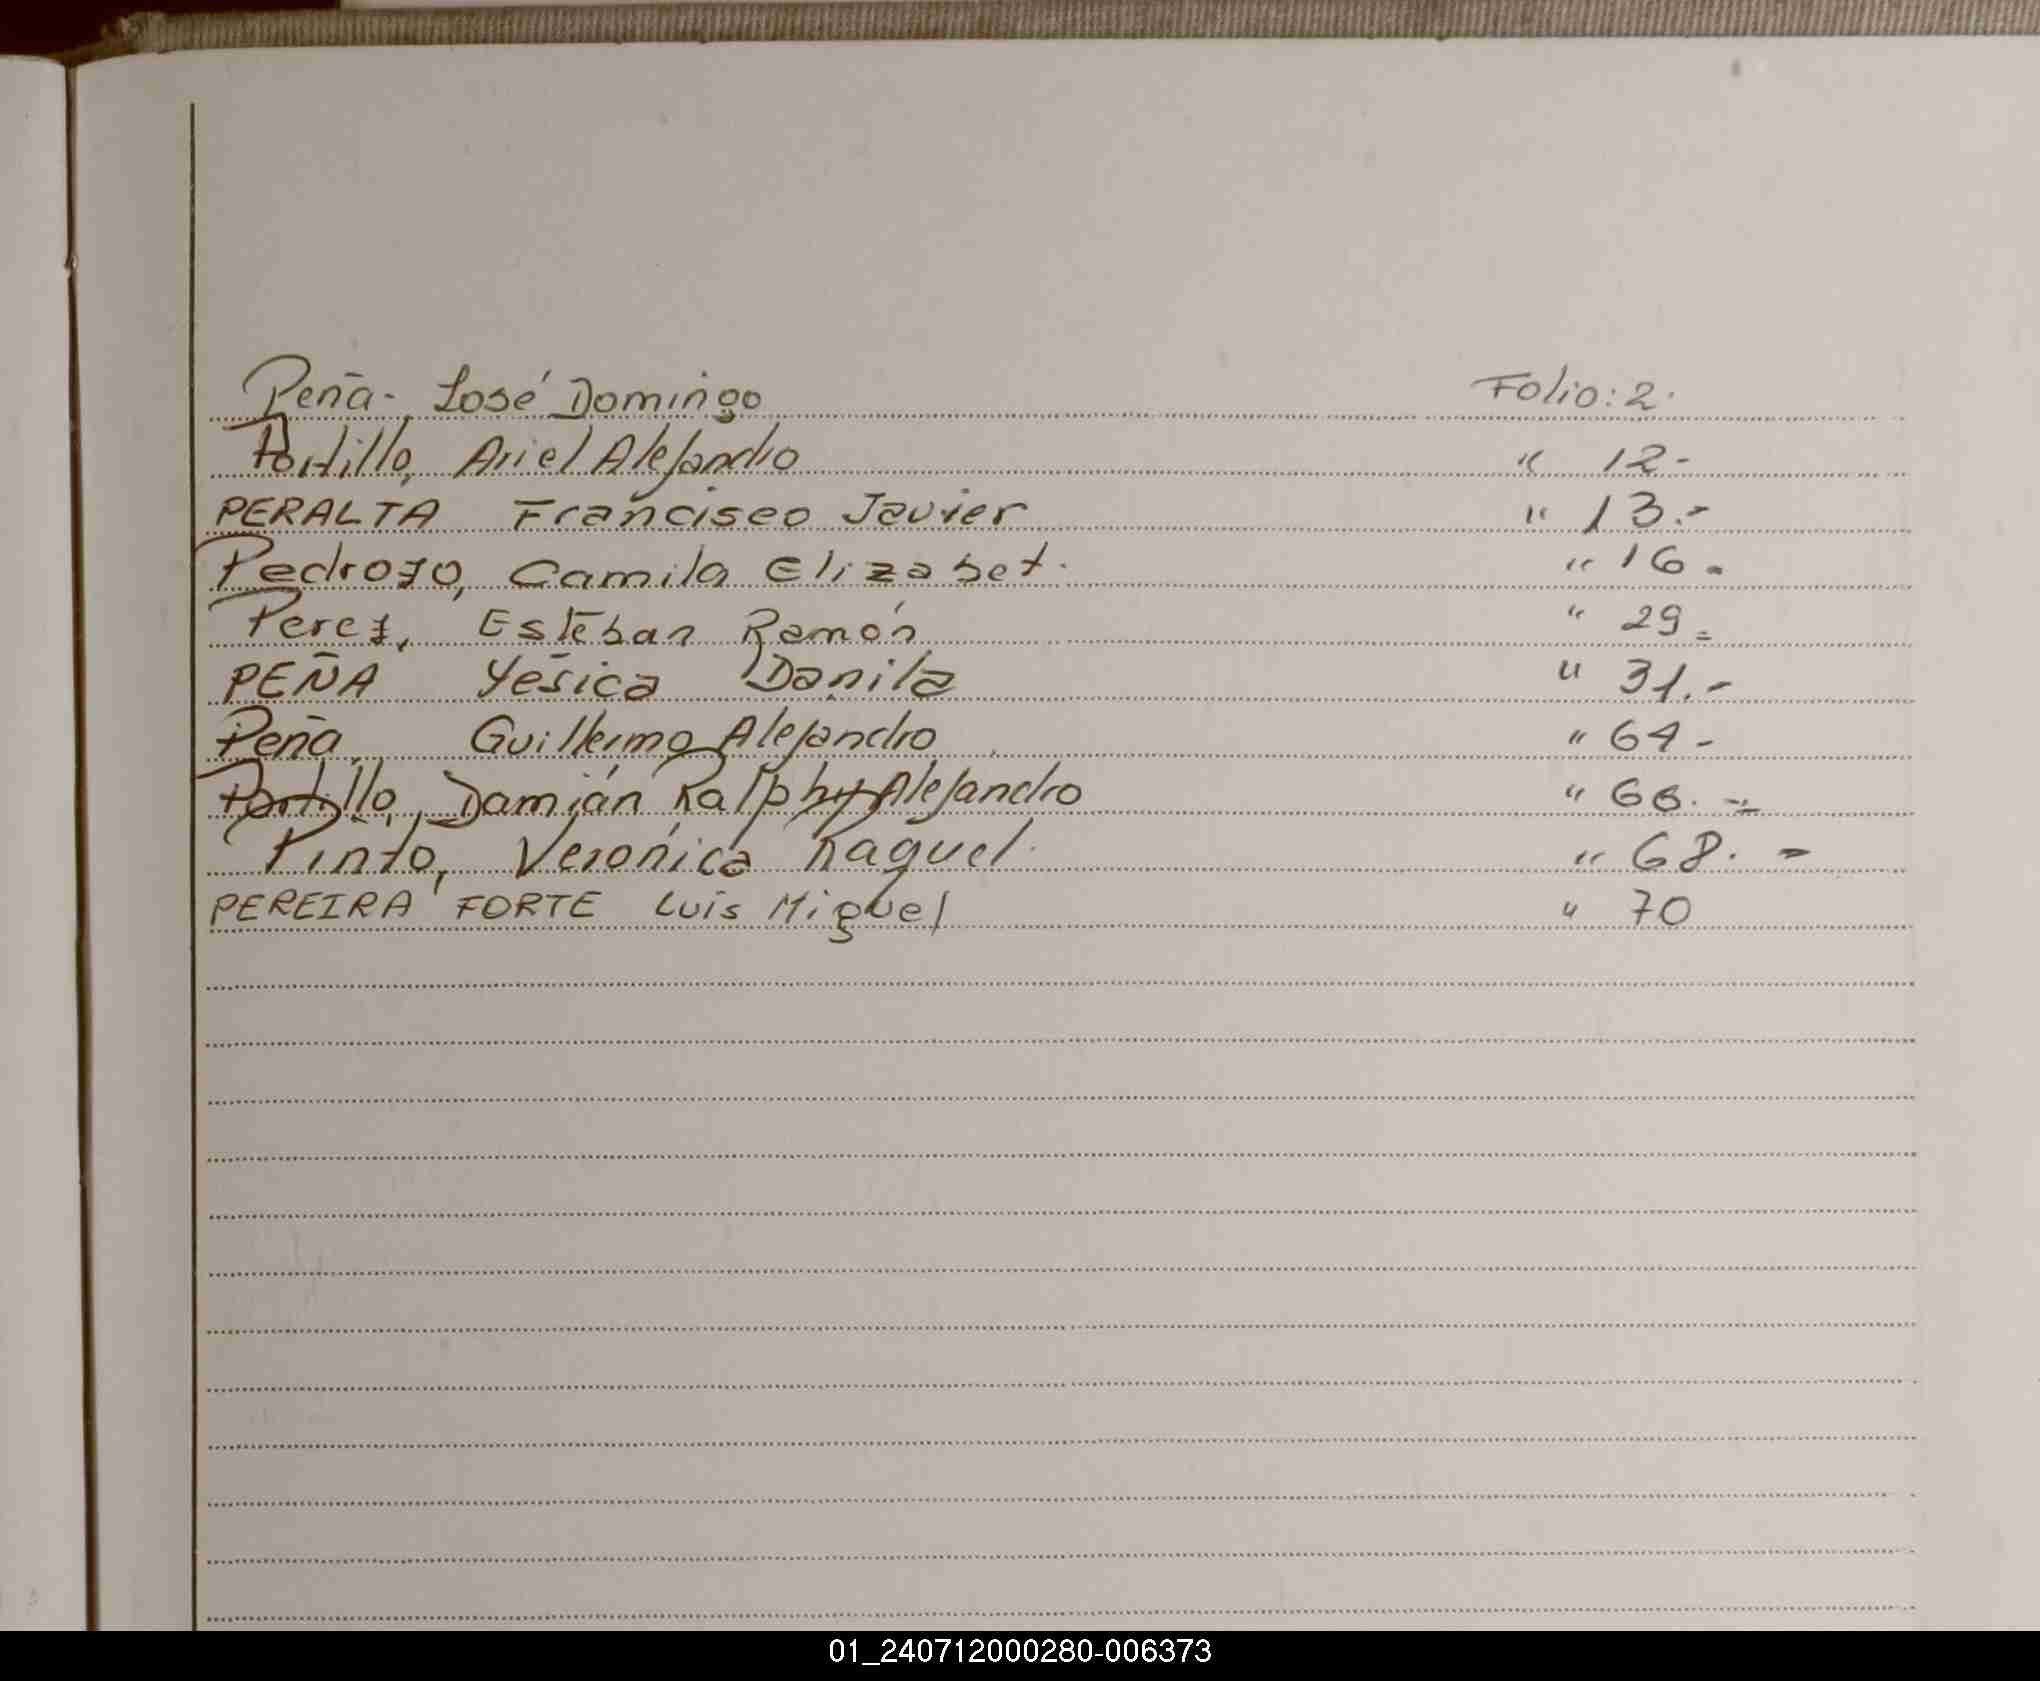 Peña - José Domingo Folio: 2.
Portillo, Ariel Alejandro " 12-
PERALTA Francisco Javier " 13.-
Pedrozo, Camila Elizabet. " 16.
Perez, Esteban Ramón " 29=
PEÑA Yésica Danila " 31.-
Peña Guillermo Alejandro " 64-
Portillo, Damián Ralphy Alejandro " 66.-
Pinto, Verónica Raquel. " 68.-
PEREIRA FORTE Luis Miguel " 70
01_240712000280-006373